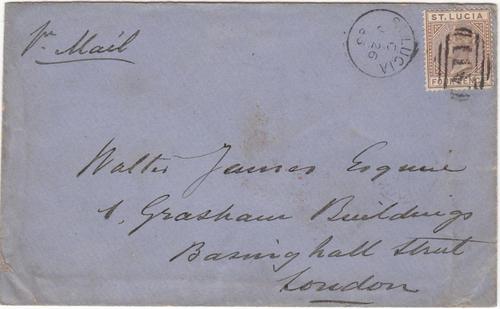 pr Mail
ST. LUCIA
ST. LUCIA
26
85
FOUR PENCE
Walter James Esquire
1, Grasham Buildings
Basinghall Street
London